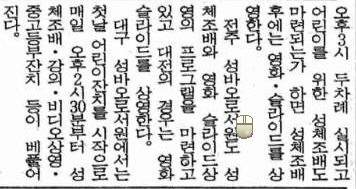 오후3시 두차례 실시되고
어린이를 위한 성체조배도
마련되는가 하면 성체조배
후에는 영화·슬라이드를 상
영한다.
전주 성바오로서원도 성
체조배와 영화 슬라이드상
영의 프로그램을 마련하고
있고 대전의 경우는 영화
슬라이드를 상영한다.
대구 성바오로서원에서는
첫날 어린이잔치를 시작으로
매일 오후2시30분부터 성
체조배·강의·비디오상영·
중고등부잔치 등이 베풀어
진다.